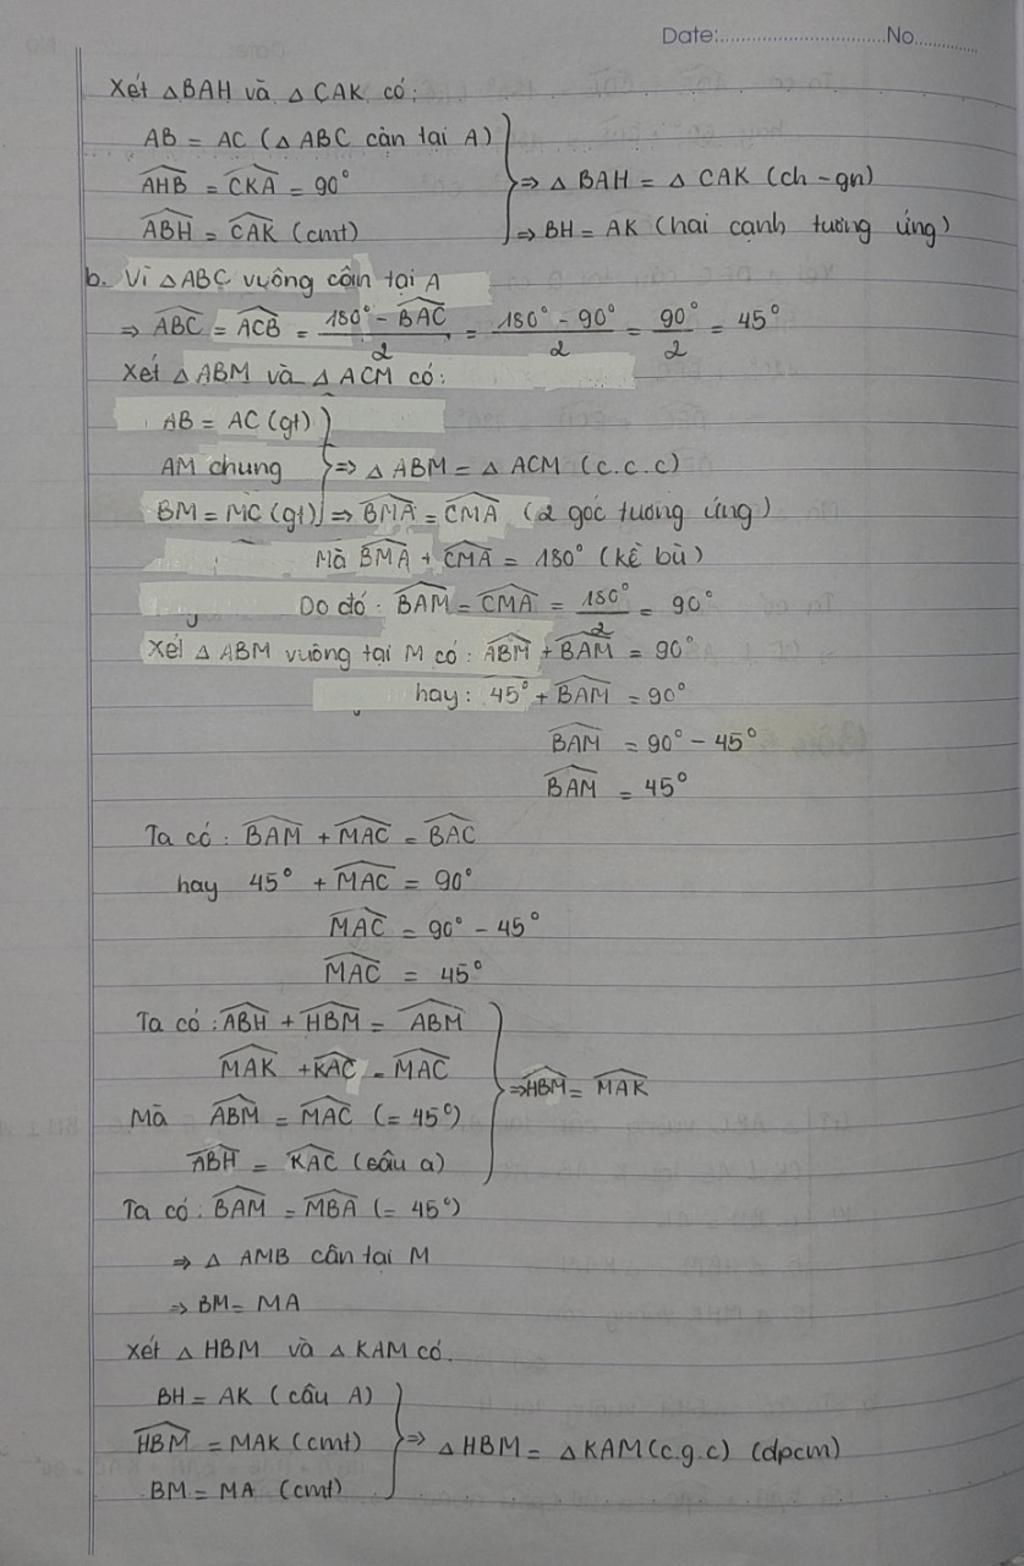 Date:..............................No.............
Xét △BAH và △CAK có:
AB = AC (△ABC cân tại A)
AHB = CKA = 90° ⇒ △BAH = △CAK (ch-gn)
ABH = CAK (cmt) ⇒ BH = AK (hai cạnh tương ứng)
b. Vì △ABC vuông cân tại A
⇒ ABC = ACB = (180° - BAC)/2 = (180° - 90°)/2 = 90°/2 = 45°
Xét △ABM và △ACM có:
AB = AC (gt)
AM chung ⇒ △ABM = △ACM (c.c.c)
BM = MC (gt) ⇒ BMA = CMA (2 góc tương ứng)
Mà BMA + CMA = 180° (kề bù)
Do đó: BAM = CMA = 180°/2 = 90°
Xét △ABM vuông tại M có: ABM + BAM = 90°
hay: 45° + BAM = 90°
BAM = 90° - 45°
BAM = 45°
Ta có: BAM + MAC = BAC
hay 45° + MAC = 90°
MAC = 90° - 45°
MAC = 45°
Ta có: ABH + HBM = ABM
MAK + KAC = MAC
⇒ HBM = MAK
Mà ABM = MAC (= 45°)
ABH = KAC (câu a)
Ta có: BAM = MBA (= 45°)
⇒ △AMB cân tại M
⇒ BM = MA
Xét △HBM và △KAM có.
BH = AK (câu A)
HBM = MAK (cmt) ⇒ △HBM = △KAM (c.g.c) (dpcm)
BM = MA (cmt)